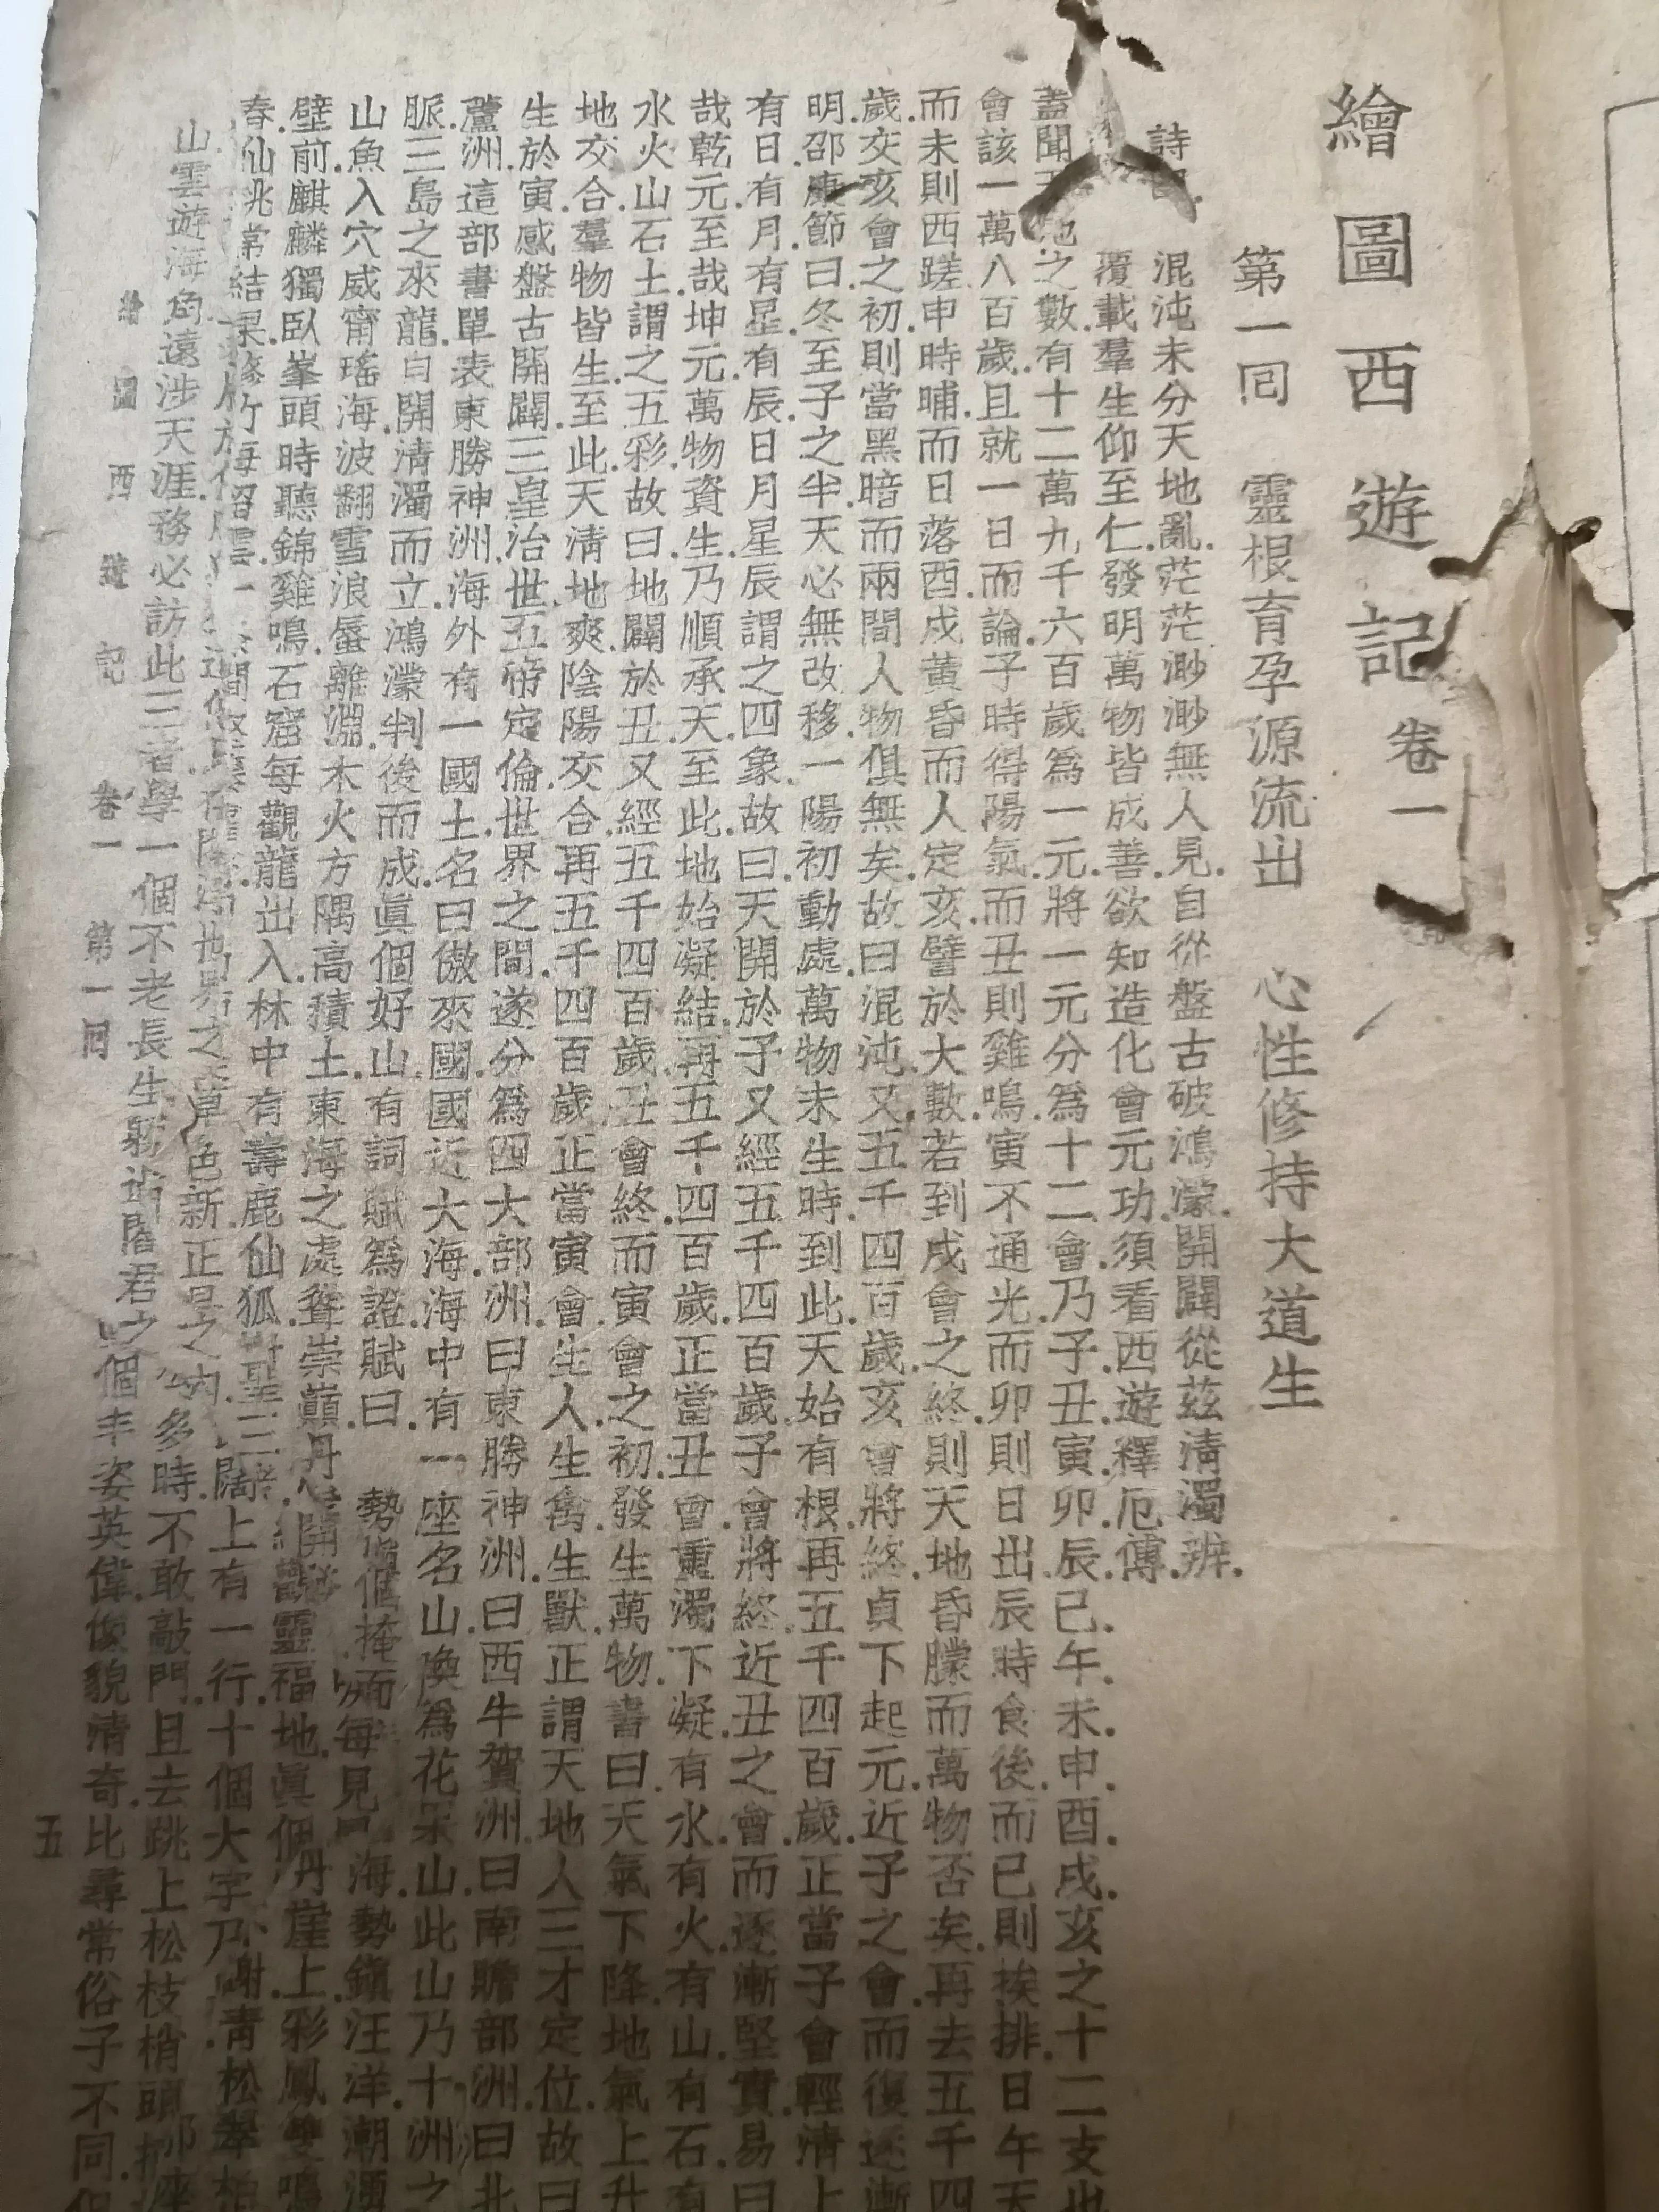 繪圖西遊記卷一
第一囘 靈根育孕源流出 心性修持大道生
詩曰 混沌未分天地亂.茫茫渺渺無人見.自從盤古破鴻濛.開闢從茲清濁辨.
覆載羣生仰至仁.發明萬物皆成善.欲知造化會元功.須看西遊釋厄傳.
蓋聞天地之數.有十二萬九千六百歲爲一元.將一元分爲十二會.乃子.丑.寅.卯.辰.巳.午.未.申.酉.戌.亥之十二支也
會該一萬八百歲.且就一日而論.子時得陽氣.而丑則雞鳴.寅不通光.而卯則日出.辰時食後.而巳則挨排.日午天
而未則西蹉.申時晡而日落酉.戌黃昏而人定亥.譬於大數.若到戌會之終.則天地昏矇而萬物否矣.再去五千四
歲.交亥會之初.則當黑暗.而兩間人物俱無矣.故曰混沌.又五千四百歲.亥會將終.貞下起元.近子之會.而復逐漸
明.邵康節曰.冬至子之半.天必無改移.一陽初動處.萬物未生時.到此天始有根.再五千四百歲.正當子會.輕清上
有日.有月.有星.有辰.日月星辰.謂之四象.故曰天開於子.又經五千四百歲.子會將終.近丑之會.而逐漸堅實.易曰
哉乾元.至哉坤元.萬物資生.乃順承天.至此.地始凝結.再五千四百歲.正當丑會.重濁下凝.有水.有火.有山.有石.有
水火山石土.謂之五彩.故曰地闢於丑.又經五千四百歲.丑會終.而寅會之初.發生萬物.書曰.天氣下降.地氣上升
地交合.羣物皆生.至此.天清地爽.陰陽交合.再五千四百歲.正當寅會.生人.生禽.生獸.正謂天地人三才定位.故曰
生於寅.感盤古開闢.三皇治世.五帝定倫.世界之間.遂分爲四大部洲.曰東勝神洲.曰西牛賀洲.曰南贍部洲.曰北
蘆洲.這部書單表東勝神洲.海外有一國土.名曰傲來國.國近大海.海中有一座名山.喚爲花果山.此山乃十洲之
脈.三島之來龍.自開清濁而立.鴻濛判後而成.眞個好山.有詞賦爲證.賦曰. 勢 海.勢鎭汪洋.潮湧
山.魚入穴.威甯瑤海.波翻雪浪.蜃離淵.木火方隅高積土.東海之處聳崇巔.丹 崖上.彩鳳雙鳴
壁前.麒麟獨臥.峯頭時聽錦雞鳴.石窟每觀龍出入.林中有壽鹿仙狐. 靈 青松翠柏
春.仙桃常結果.修竹每留雲. 草色新.正是
福地.眞個
上有一行.十個大字.乃
山.雲遊海角.遠涉天涯.務必訪此三者.學一個不老長生.躲過閻君之 多時.不敢敲門.且去跳上松枝梢頭
個丰姿英偉.像貌清奇.比尋常俗子不同.但
繪圖西遊記 卷一 第一囘 五